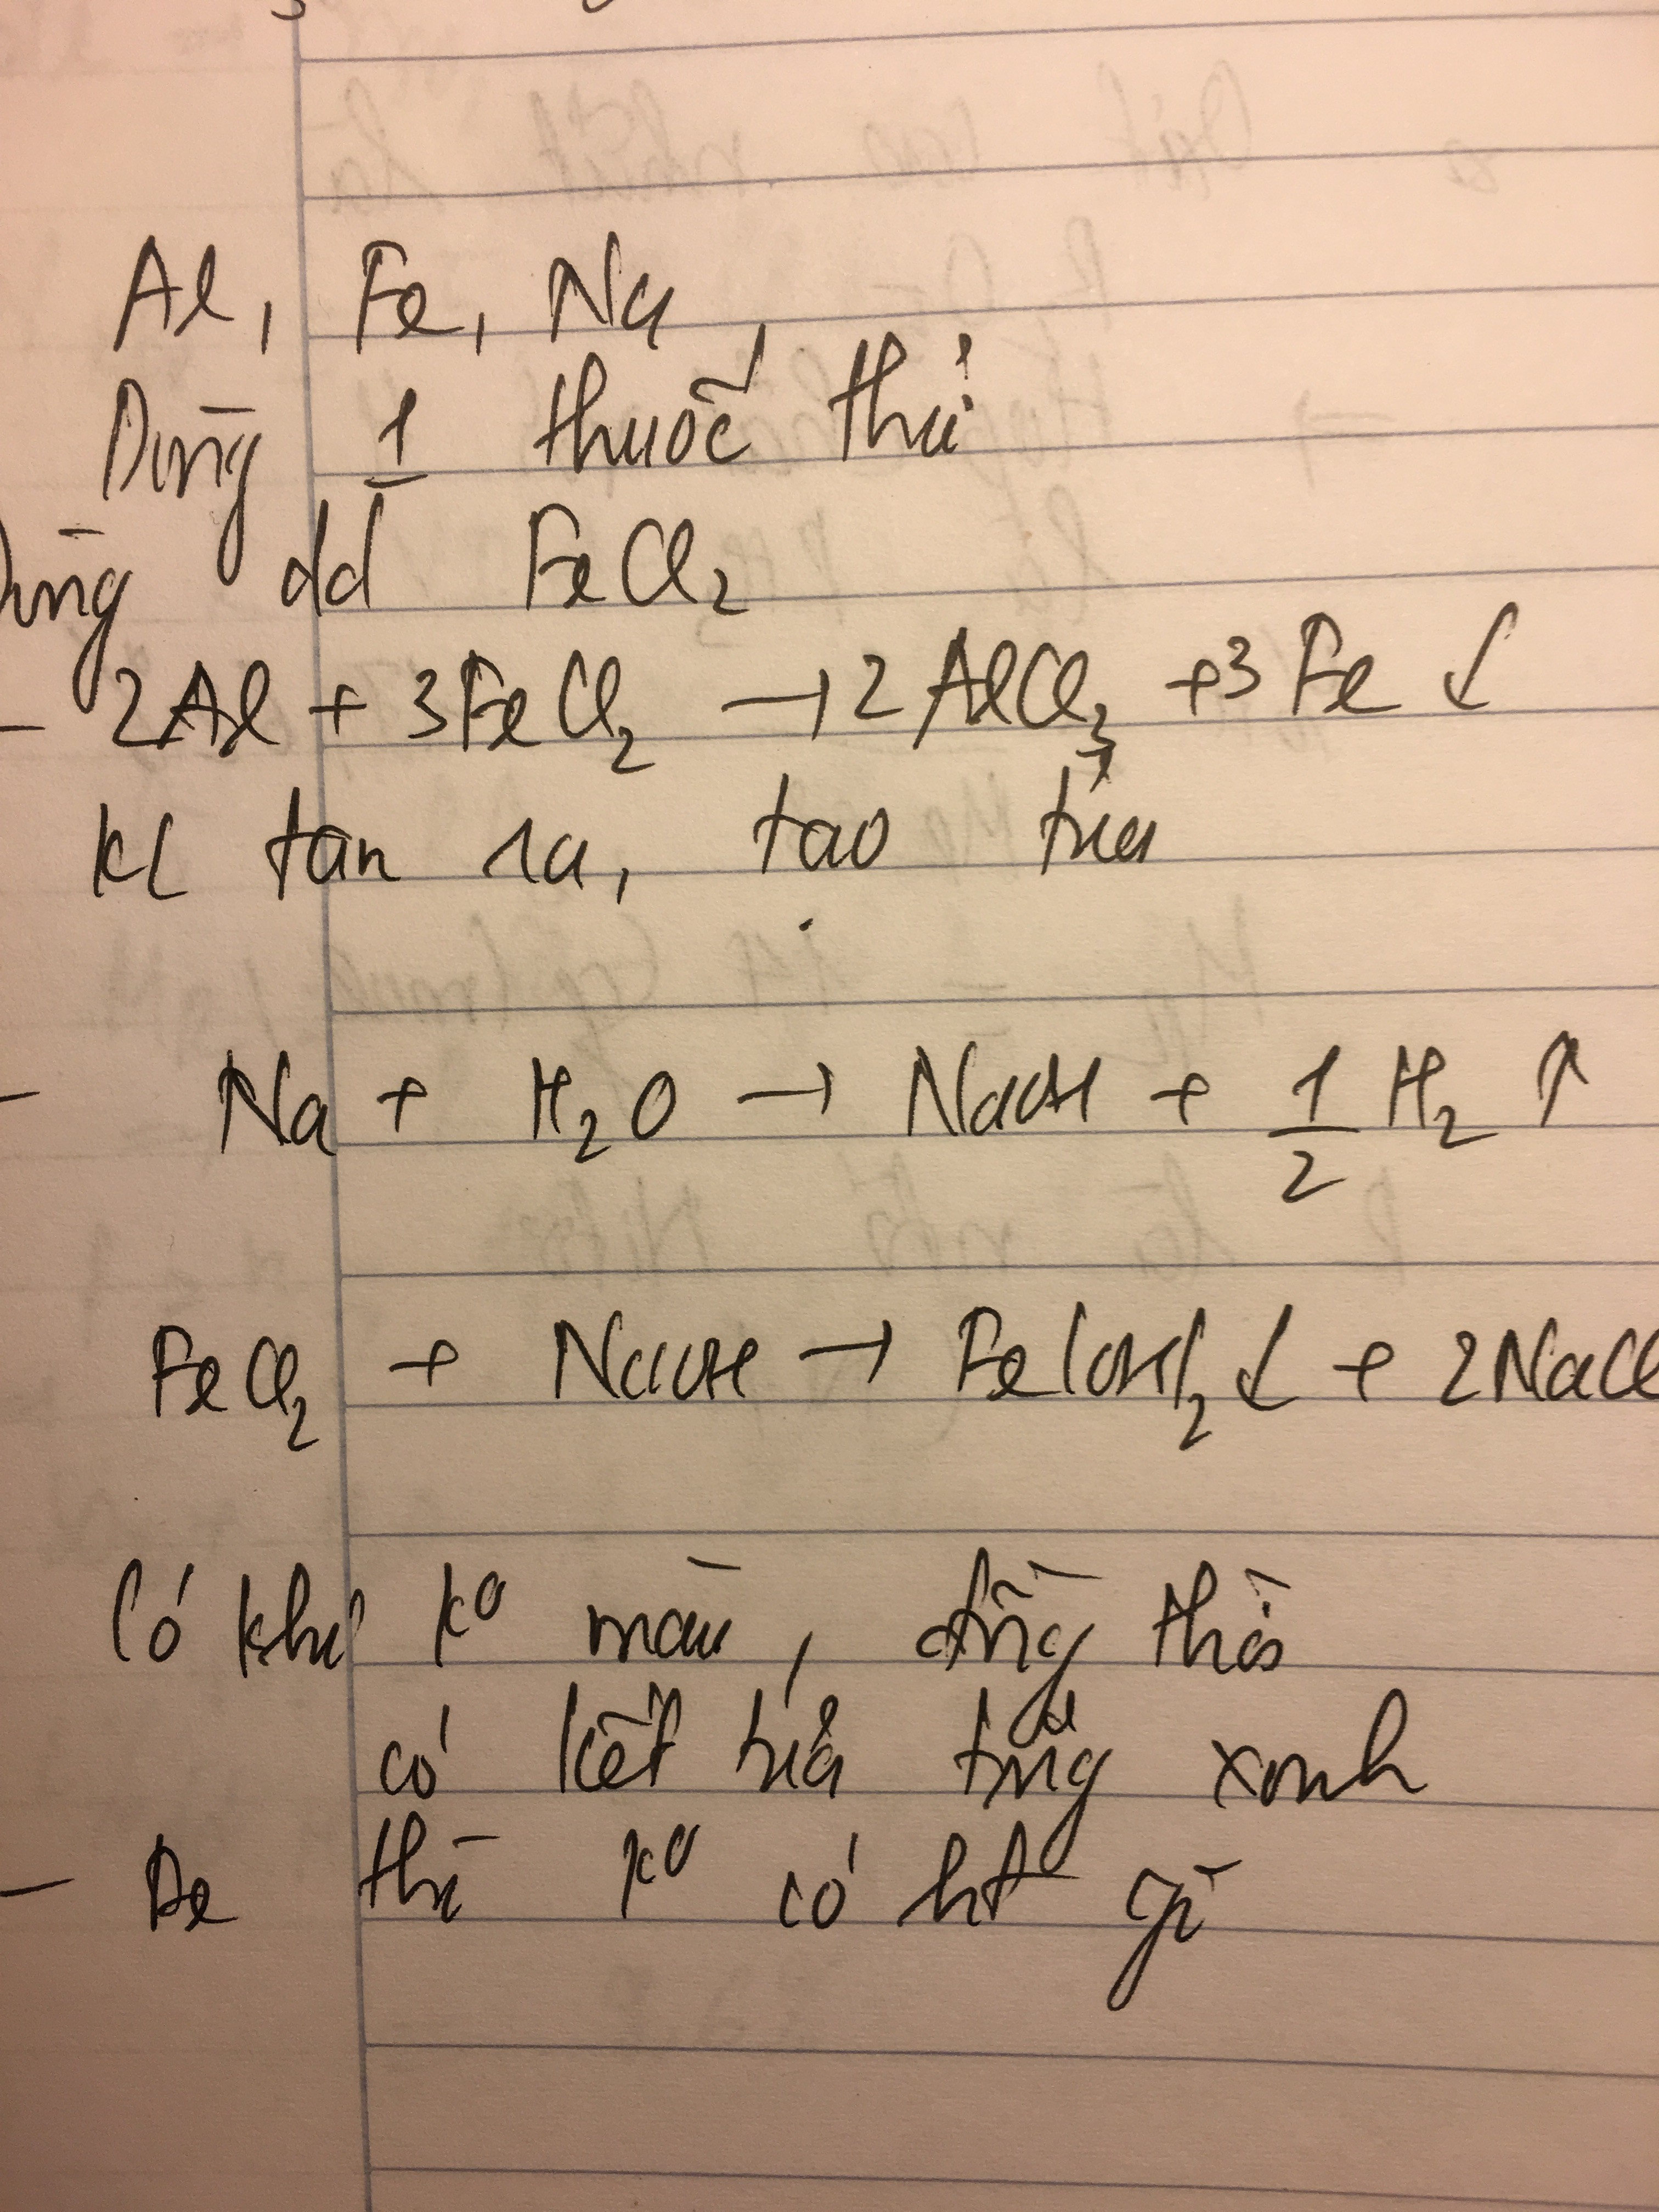 Al, Fe, Na
Dùng 1 thuốc thử
Dùng dd FeCl₂
- 2Al + 3FeCl₂ → 2AlCl₃ + 3Fe ↓
KL tan ra, tạo tủa
- Na + H₂O → NaOH + 1/2 H₂ ↑
FeCl₂ + NaOH → Fe(OH)₂ ↓ + 2NaCl
Có khí k⁰ màu, đồng thời
có kết tủa trắng xanh
- Fe thì k⁰ có ht gì